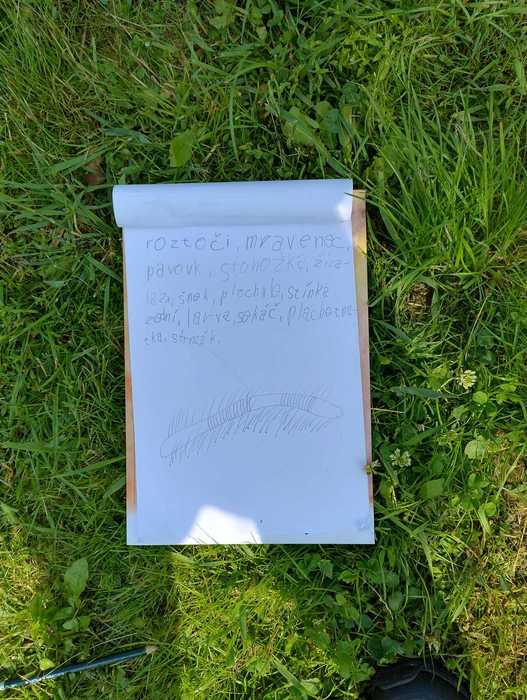 roztoči, mravenec,
pavouk, stonožka, žíža-
la, šnek, plochula, stínka
zední, larva, sekáč, plachetna-
tka, strnák.